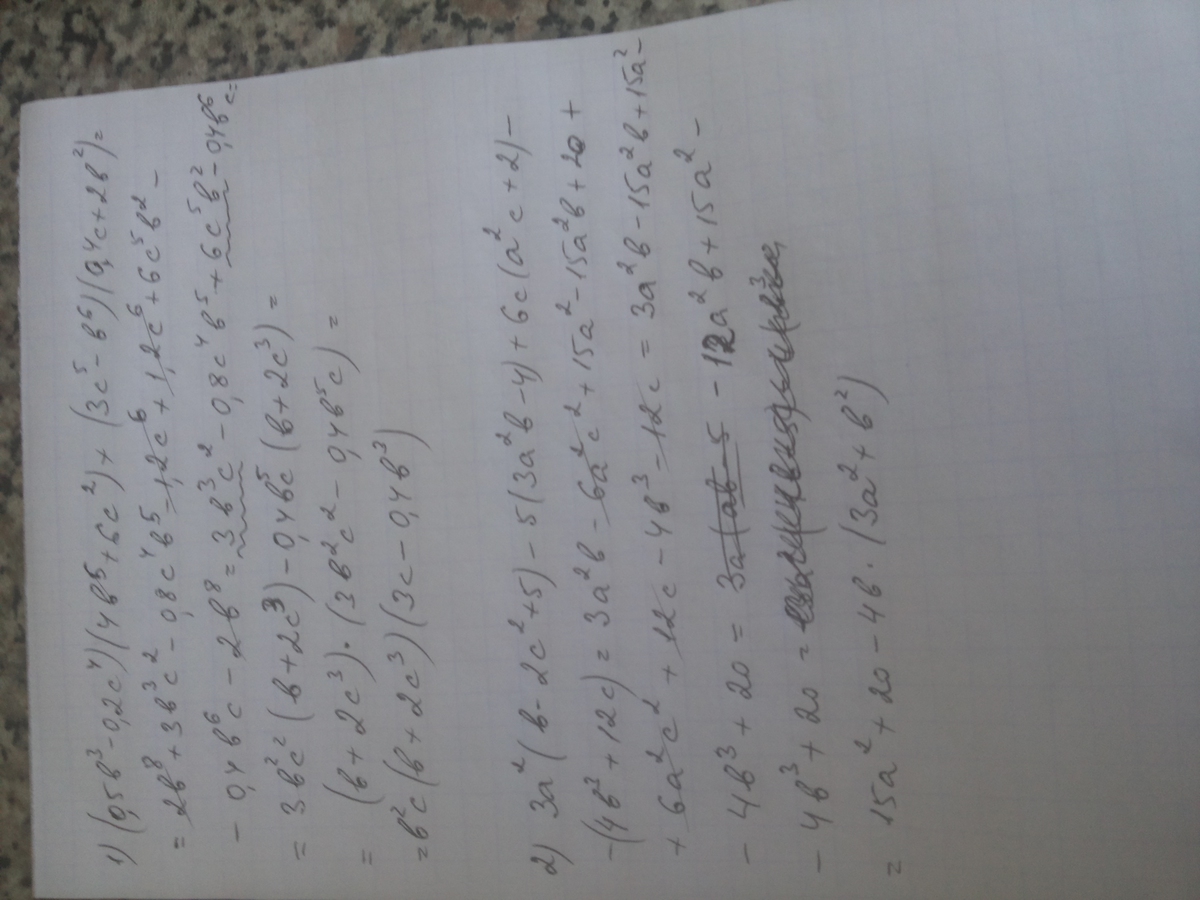 1) (0,5в³-0,2c⁴)(4в⁵+6c²)+(3c⁵-в⁶)(0,4c+2в²)=
= 2в⁸+3в³c²-0,8c⁴в⁵-1,2c⁶+1,2c⁶+6c⁵в²-
- 0,4в⁶c-2в⁸=3в³c²-0,8c⁴в⁵+6c⁵в²-0,4в⁶c=
= 3вc²(в+2c³)-0,4в⁵c(в+2c³)=
= (в+2c³)·(3в²c²-0,4в⁵c)=
=в²c(в+2c³)(3c-0,4в³)
2) 3a²(в-2c²+5)-5(3a²в-4)+6c(a²c+2)-
-(4в³+12c)=3a²в-6a²c²+15a²-15a²в+20+
+ 6a²c²+12c-4в³-12c=3a²в-15a²в+15a²-
- 4в³+20= 3a(ав-5 -12a²в+15a²-
- 4в³+20=
= 15a²+20-4в·(3a²+в²)